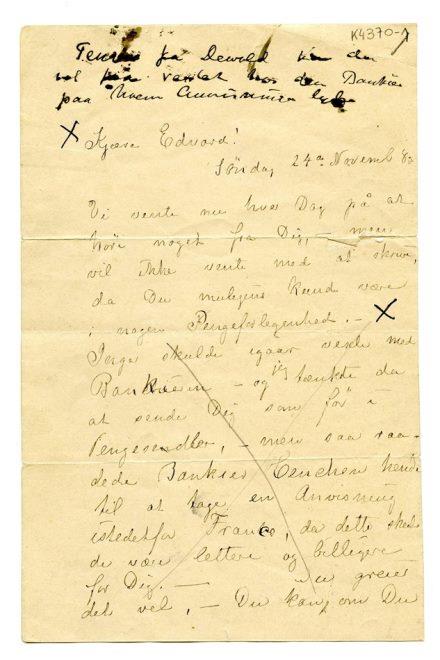 K4370-
paa hvem Anvisningen
Kjære Edvard!
Søndag 24de Novemb 89
Vi vente nu hver Dag på at
høre noget fra Dig, – men
vil ikke vente med at skrive,
da Du muligens kunde være
i nogen Pengeforlegenhed. –
Inger skulde igaar vexle med
Bankieren – og jeg tænkte da
at sende Dig som før i
Pengesedler, – men saa raa-
dede Bankier Henchen hende
til at tage en Anvisning
istedetfor Francs, da dette skul
de være lettere og billigere
for Dig. – Du greier
det vel, – Du kan, om Du